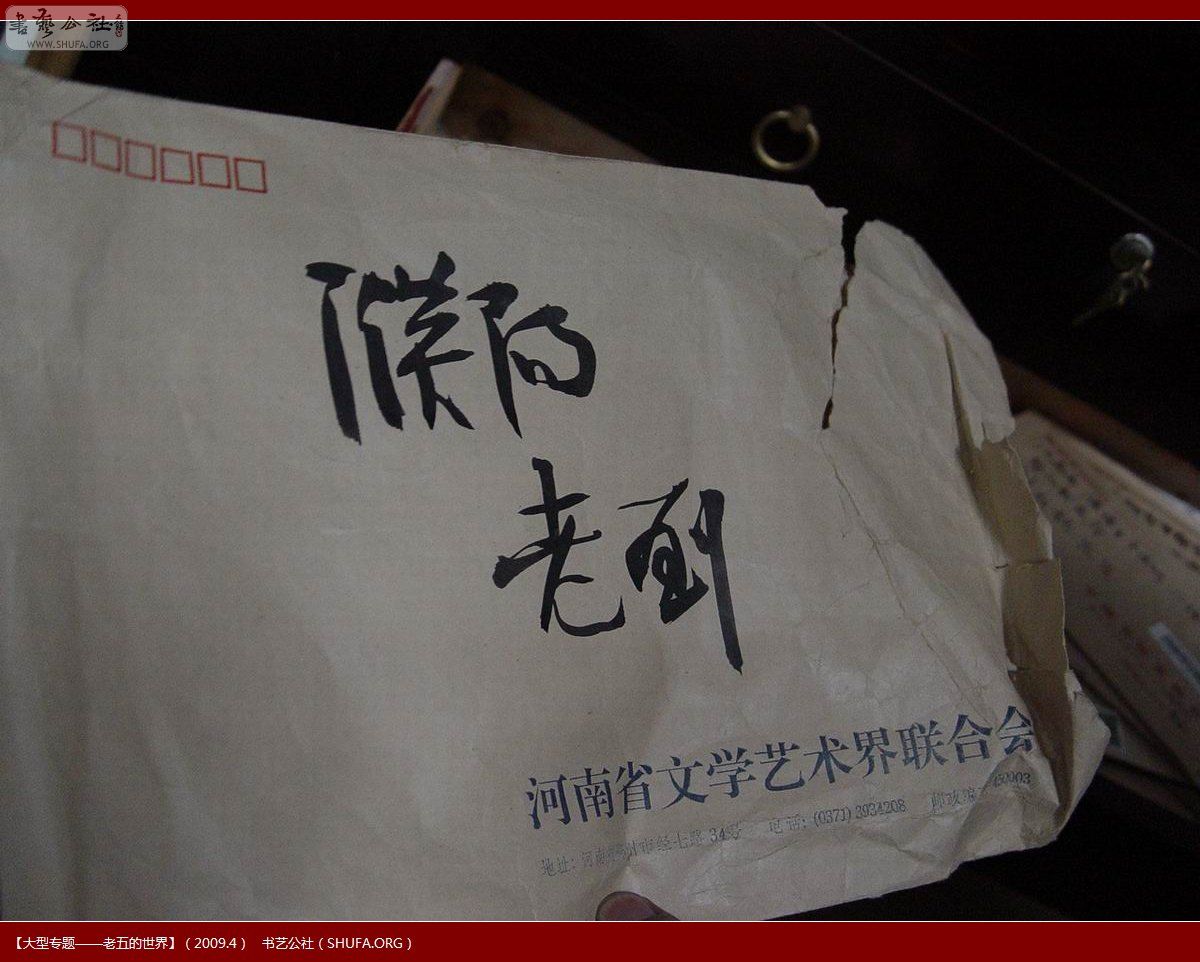 书艺公社
WWW.SHUFA.ORG
濮阳
老刘
河南省文学艺术界联合会
地址：河南郑州市经七路34号 电话：(0371)3934208 邮政编 450003
【大型专题——老五的世界】（2009.4） 书艺公社（SHUFA.ORG）